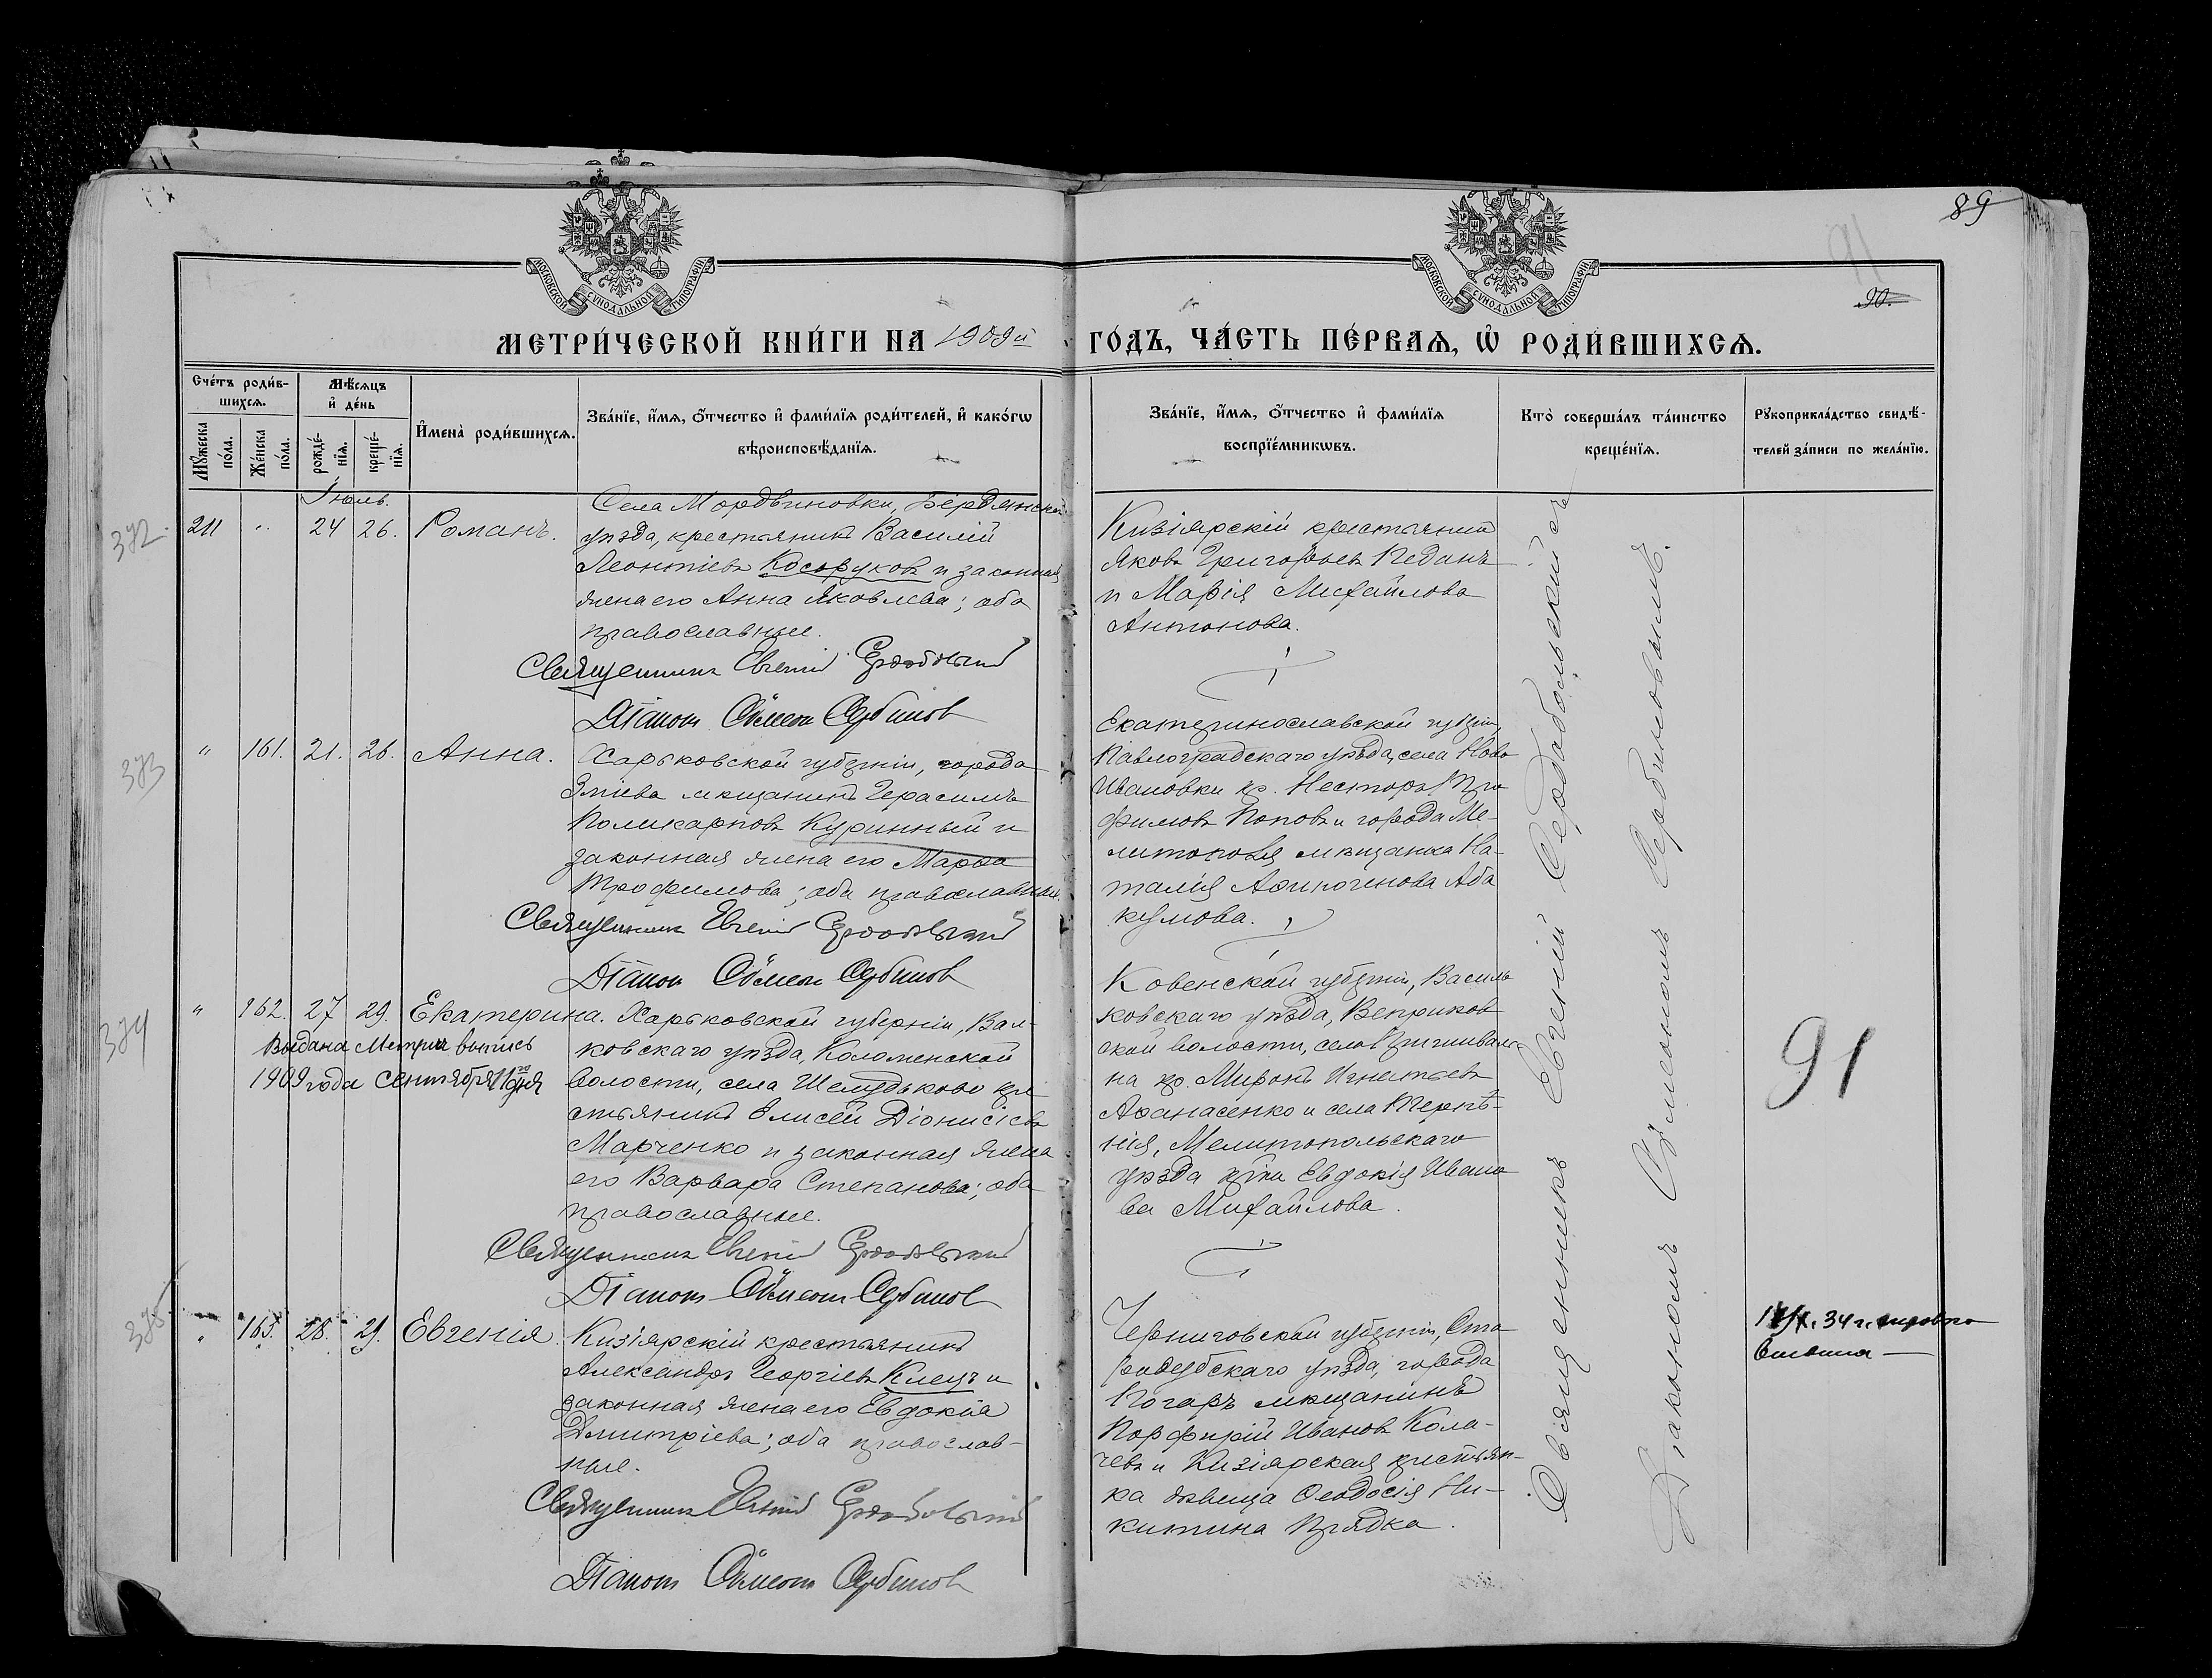 89
91
90.
МОСКОВСКОЙ СѴНОДАЛЬНОЙ ТИПОГРАФІИ
МОСКОВСКОЙ СѴНОДАЛЬНОЙ ТИПОГРАФІИ
МЕТРИ́ЧЕСКОЙ КНИ́ГИ НА 1909й ГО́ДЪ, ЧА́СТЬ ПЕ́РВАѦ, Ѡ҆ РОДИ́ВШИХСѦ.
Сче́тъ роди́в-
шихсѧ.
Мꙋ́жеска по́ла.
Же́нска по́ла.
Мѣ́сѧцъ
и҆ де́нь
рожде́-
нїѧ.
креще́-
нїѧ.
И҆мена̀ роди́вшихсѧ.
Зва́нїе, и҆́мѧ, ѻ҆́тчество и҆ фами́лїѧ роди́телей, и҆ како́гѡ
вѣроисповѣ́данїѧ.
Зва́нїе, и҆́мѧ, ѻ҆́тчество и҆ фами́лїѧ
воспрїе́мникѡвъ.
Кто̀ соверша́лъ та́инство
креще́нїѧ.
Рꙋкоприкла́дство свидѣ́-
телей за́писи по жела́нїю.
Іюль.
372.
211 " 24 26. Романъ.
Села Мордвиновки, Бердянскаго
уѣзда, крестьянинъ Василій
Леонтіевъ Косоруковъ и законная
жена его Анна Яковлева; оба
православные.
Священникъ Евгеній Сердобольскій
Діаконъ Симеонъ Сербиновъ
Кизіярскій крестьянинъ
Яковъ Григорьевъ Педанъ
и Марія Михайлова
Антонова.
373
" 161. 21. 26. Анна.
Харьковской губерніи, города
Зміева мѣщанинъ Герасимъ
Поликарповъ Куринный и
законная жена его Марѳа
Трофимова; оба православные.
Священникъ Евгеній Сердобольскій
Діаконъ Симеонъ Сербиновъ
Екатеринославской губерніи,
Павлоградскаго уѣзда, села Ново
Ивановки кр. Несторъ Тро
фимовъ Поповъ и города Ме-
литополя мѣщанка На-
талія Аѳиногенова Аба
кумова.
374
" 162. 27 29. Екатерина.
Выдана Метрич выпись
1909 года Сентября 11го дня
Харьковской губерніи, Вал-
ковскаго уѣзда, Коломенской
волости, села Шелудьково кре
стьянинъ Елисей Діонисіевъ
Марченко и законная жена
его Варвара Степанова; оба
православные.
Священникъ Евгеній Сердобольскій
Діаконъ Симеонъ Сербиновъ
Ковенской губерніи, Василь
ковскаго уѣзда, Веприков
ской волости, села
на кр. Миронъ Игнатьевъ
Аѳанасенко и села Терпѣ-
нія, Мелитопольскаго
уѣзда Евдокія Ивано
ва Михайлова.
375
" 163. 28. 29. Евгенія.
Кизіярскій крестьянинъ
Александръ Георгіевъ Клецъ и
законная жена его Евдокія
Дмитріева; оба православ-
ные.
Священникъ Евгеній Сердобольскій
Діаконъ Симеонъ Сербиновъ
Черниговской губерніи, Ста
родубскаго уѣзда, города
Погаръ мѣщанинъ
Порфирій Ивановъ Кола-
чевъ и Кизіярская крестьян-
ка дѣвица Ѳеодосія Ни-
китина Прядка.
Священникъ Евгеній Сердобольскій съ
Діакономъ Симеономъ Сербиновымъ.
91
34 г.